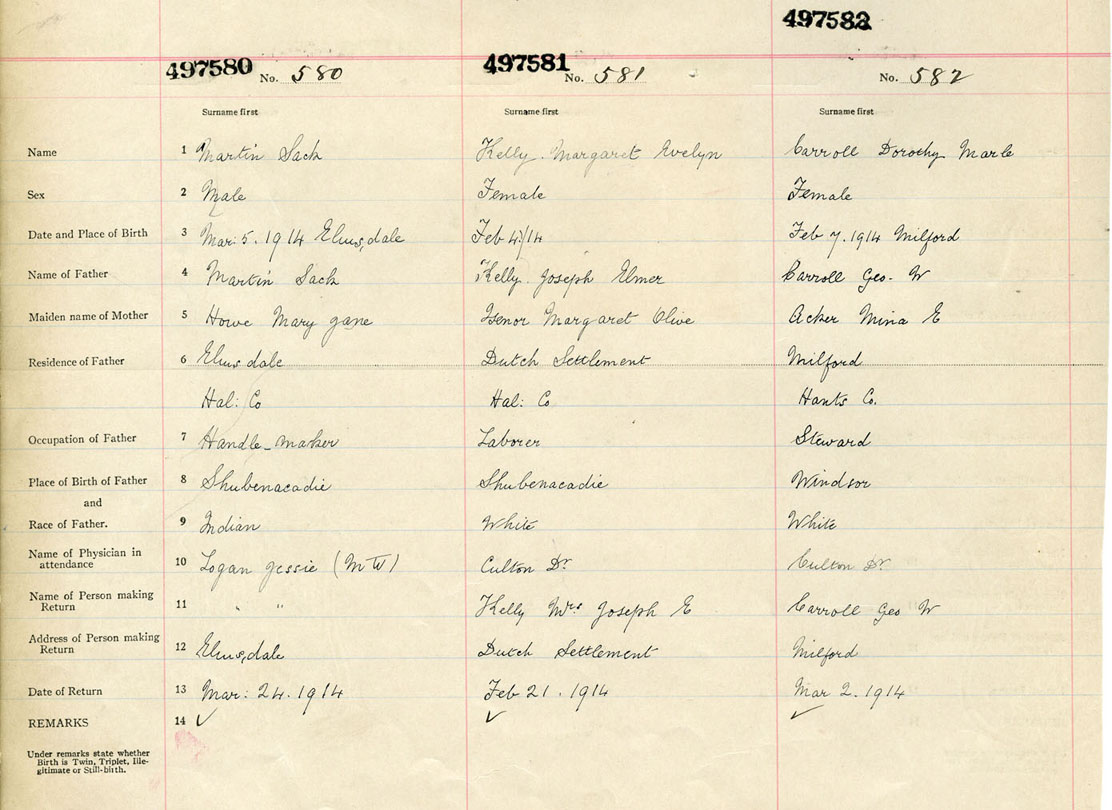 497580 No. 580 497581 No. 581 497582 No. 582
Surname first Surname first Surname first
Name 1 Martin Sack Kelly. Margaret Evelyn Carroll Dorothy Marle
Sex 2 Male Female Female
Date and Place of Birth 3 Mar: 5. 1914 Elmsdale Feb 4/14 Feb 7. 1914 Milford
Name of Father 4 Martin Sack Kelly. Joseph Elmer Carroll Geo. W
Maiden name of Mother 5 Howe Mary Jane Isenor Margaret Olive Acker Mina E
Residence of Father 6 Elmsdale Dutch Settlement Milford
Hal: Co Hal: Co Hants Co.
Occupation of Father 7 Handle-maker Laborer Steward
Place of Birth of Father 8 Shubenacadie Shubenacadie Windsor
and
Race of Father. 9 Indian White White
Name of Physician in
attendance 10 Logan Jessie (M W) Culton Dr. Culton Dr.
Name of Person making
Return 11 " " Kelly Mrs Joseph E Carroll Geo W
Address of Person making
Return 12 Elmsdale Dutch Settlement Milford
Date of Return 13 Mar: 24. 1914 Feb 21. 1914 Mar 2. 1914
REMARKS 14 ✓ ✓ ✓
Under remarks state whether
Birth is Twin, Triplet, Ille-
gitimate or Still-birth.